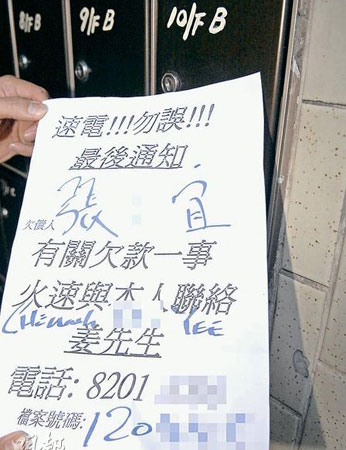 8/F B
9/F B
10/F B
速電!!!勿誤!!!
最後通知.
欠債人 張 宜
有關欠款一事
火速與本人聯絡
YEE
姜先生
電話: 8201
檔案號碼: 120